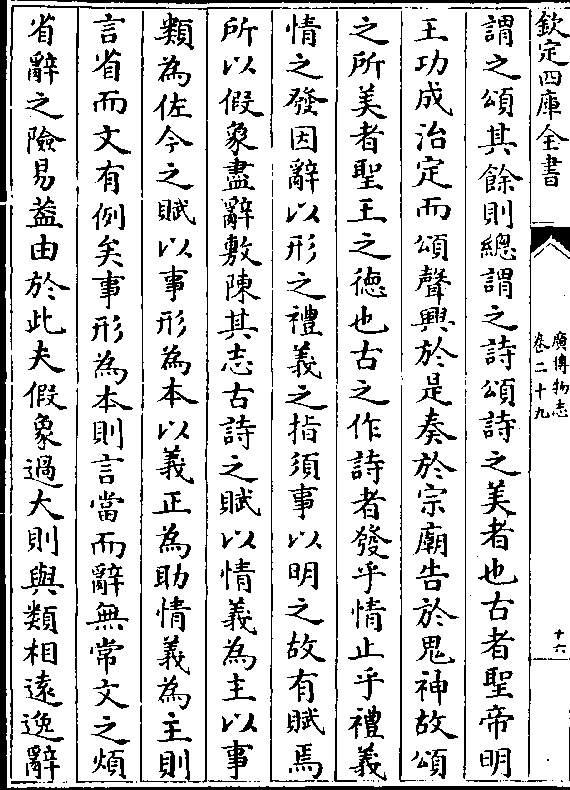 欽定四庫全書
廣博物志
卷二十九
十六
謂之頌其餘則總謂之詩頌詩之美者也古者聖帝明
王功成治定而頌聲興於是奏於宗廟告於鬼神故頌
之所美者聖王之德也古之作詩者發乎情止乎禮義
情之發因辭以形之禮義之指須事以明之故有賦焉
所以假象盡辭敷陳其志古詩之賦以情義為主以事
類為佐今之賦以事形為本以義正為助情義為主則
言省而文有例矣事形為本則言當而辭無常文之煩
省辭之險易葢由於此夫假象過大則與類相遠逸辭